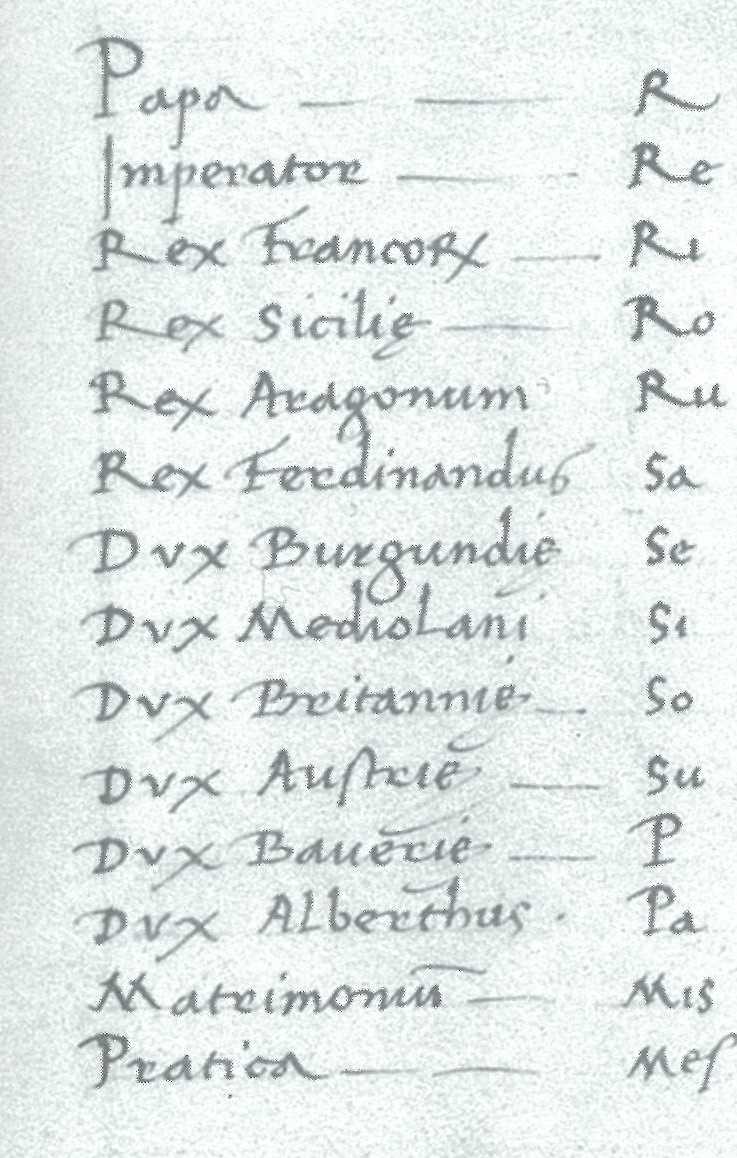 Papa — — R
Imperator — - Re
Rex Francoꝝ — Ri
Rex Sicilię — Ro
Rex Aragonum Ru
Rex Ferdinandus Sa
Dvx Burgundię Se
Dvx Mediolani Si
Dvx Britannię — So
Dvx Auſtrię — Su
Dvx Bauęrię — P
Dvx Alberthus · Pa
Matrimoniū — Mis
Pratica — — Meſ